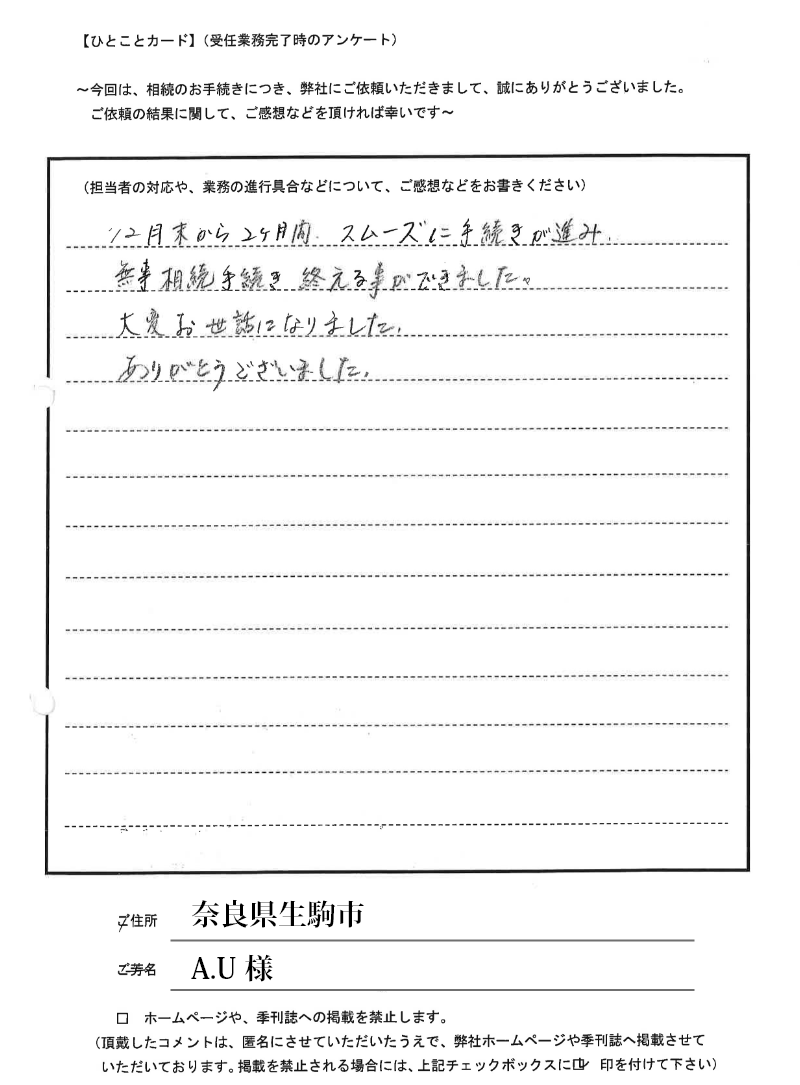 【ひとことカード】（受任業務完了時のアンケート）
～今回は、相続のお手続きにつき、弊社にご依頼いただきまして、誠にありがとうございました。
ご依頼の結果に関して、ご感想などを頂ければ幸いです～
（担当者の対応や、業務の進行具合などについて、ご感想などをお書きください）
12月末から2ヶ月間、スムーズに手続きが進み、
無事相続手続き終える事ができました。
大変お世話になりました。
ありがとうございました。
ご住所 奈良県生駒市
ご芳名 A.U 様
□ ホームページや、季刊誌への掲載を禁止します。
（頂戴したコメントは、匿名にさせていただいたうえで、弊社ホームページや季刊誌へ掲載させて
いただいております。掲載を禁止される場合には、上記チェックボックスに☑ 印を付けて下さい）